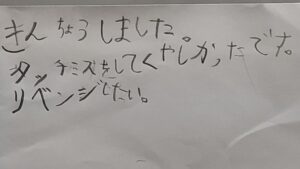 きんちょうしました。
タッチミスをしてくやしかったです。
リベンジしたい。